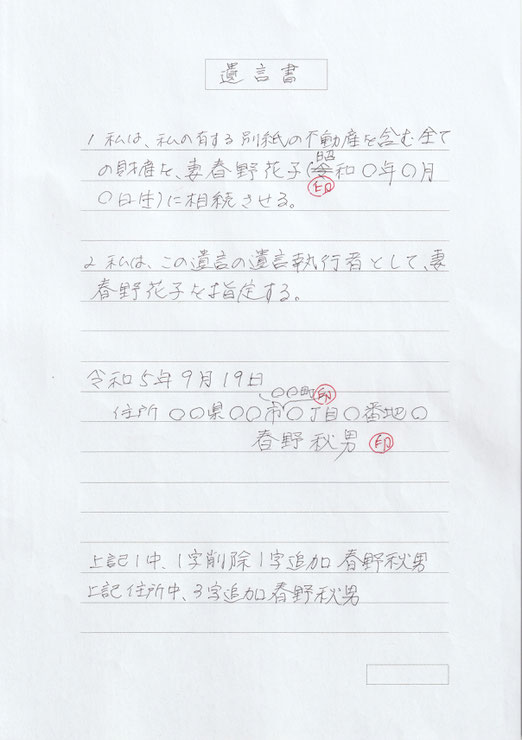 遺言書
1 私は、私の有する別紙の不動産を含む全て
の財産を、妻春野花子(令和〇年〇月
昭
印
〇日生)に相続させる。
2 私は、この遺言の遺言執行者として、妻
春野花子を指定する。
令和5年9月19日
〇〇町 印
住所 〇〇県〇〇市〇丁目〇番地〇
春野秋男 印
上記1中、1字削除1字追加 春野秋男
上記住所中、3字追加 春野秋男